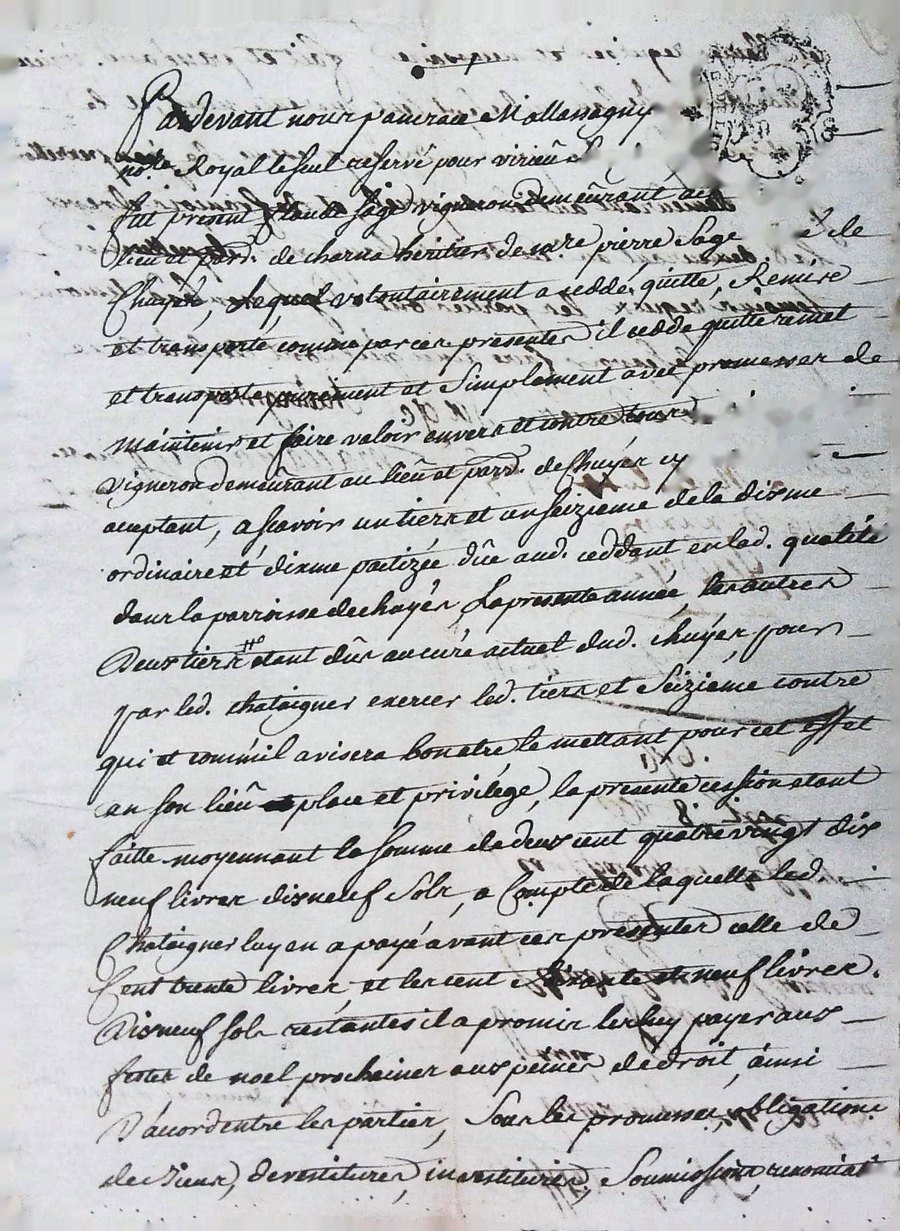 Pardevant nous pancrace Mallassagny
no.re Royal le seul reservé pour virieu
fut présent Claude Sage vigneron demeûrant au
lieu et parr. de charna héritier de m.re pierre Sage de
Chuyér, lequel volontairement a ceddé, quitté, Remis
et transporté comme par ces présentes il cedde quitte remet
et transporte purement et Simplement avec promesses de
maintenir et faire valoir envers et contre tous
vigneron demeûrant au lieu et parr. de Chuyér cy
aceptant, a scavoir un tiers et un seizieme de la dixme
ordinaire et dixme partizée dûe aud. ceddant en lad. qualité
dans la parroisse de chuyér, La presente année, les autres
deux tiers etant dûs au curé actuel dud. Chuyér, pour
par led. chataigner exercer led. tiers et Seizieme contre
qui et comm'il avisera bon etre le mettant pour cet effet
en son lieû place et privilége, la presente cession etant
faitte moyennant la somme de deux cent quatre vingt dix
neuf livres dixneuf Sols, a Compte de laquelle led.
Chataigner luy en a payé avant ces présentes celle de
Cent trente livres, et les cent soixante et neuf livres
dixneuf sols restantes il a promis les luy payer aux
festes de noel prochaines aux peines de droit, ainsi
d'acord entre les parties, Sous les promesses, obligations
de biens, devestitures, investitures, Soumissions, renonciat